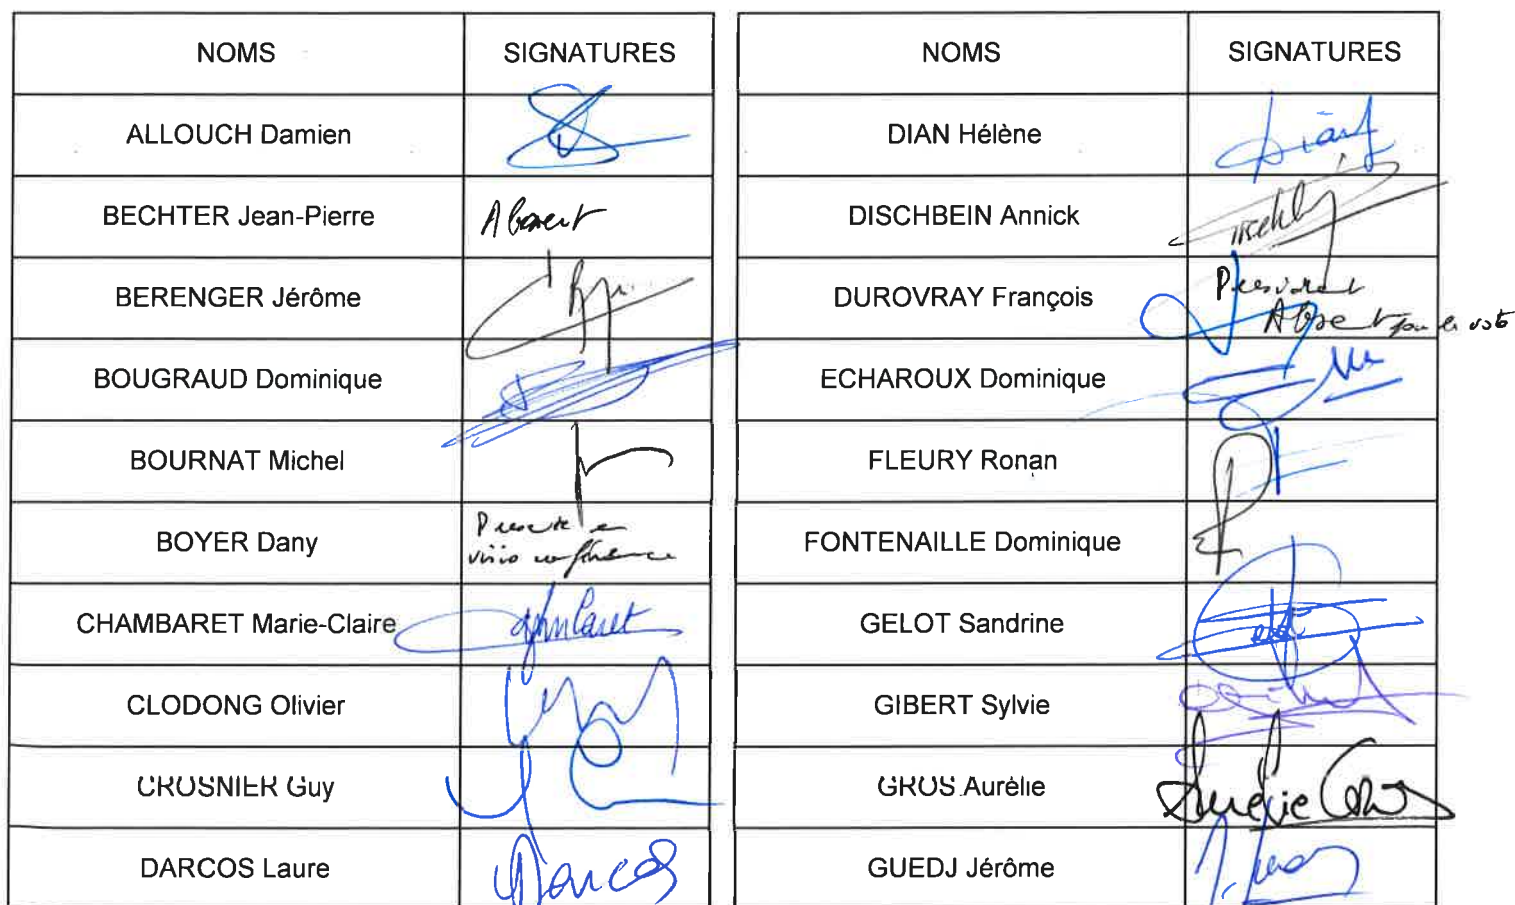 NOMS SIGNATURES
ALLOUCH Damien
BECHTER Jean-Pierre Absent
BERENGER Jérôme
BOUGRAUD Dominique
BOURNAT Michel
BOYER Dany Presente en
visio conférence
CHAMBARET Marie-Claire
CLODONG Olivier
CROSNIER Guy
DARCOS Laure Darcos
NOMS SIGNATURES
DIAN Hélène Dian
DISCHBEIN Annick
DUROVRAY François President
Absent pour le vote
ECHAROUX Dominique
FLEURY Ronan
FONTENAILLE Dominique
GELOT Sandrine
GIBERT Sylvie
GROS Aurélie Aurélie Gros
GUEDJ Jérôme